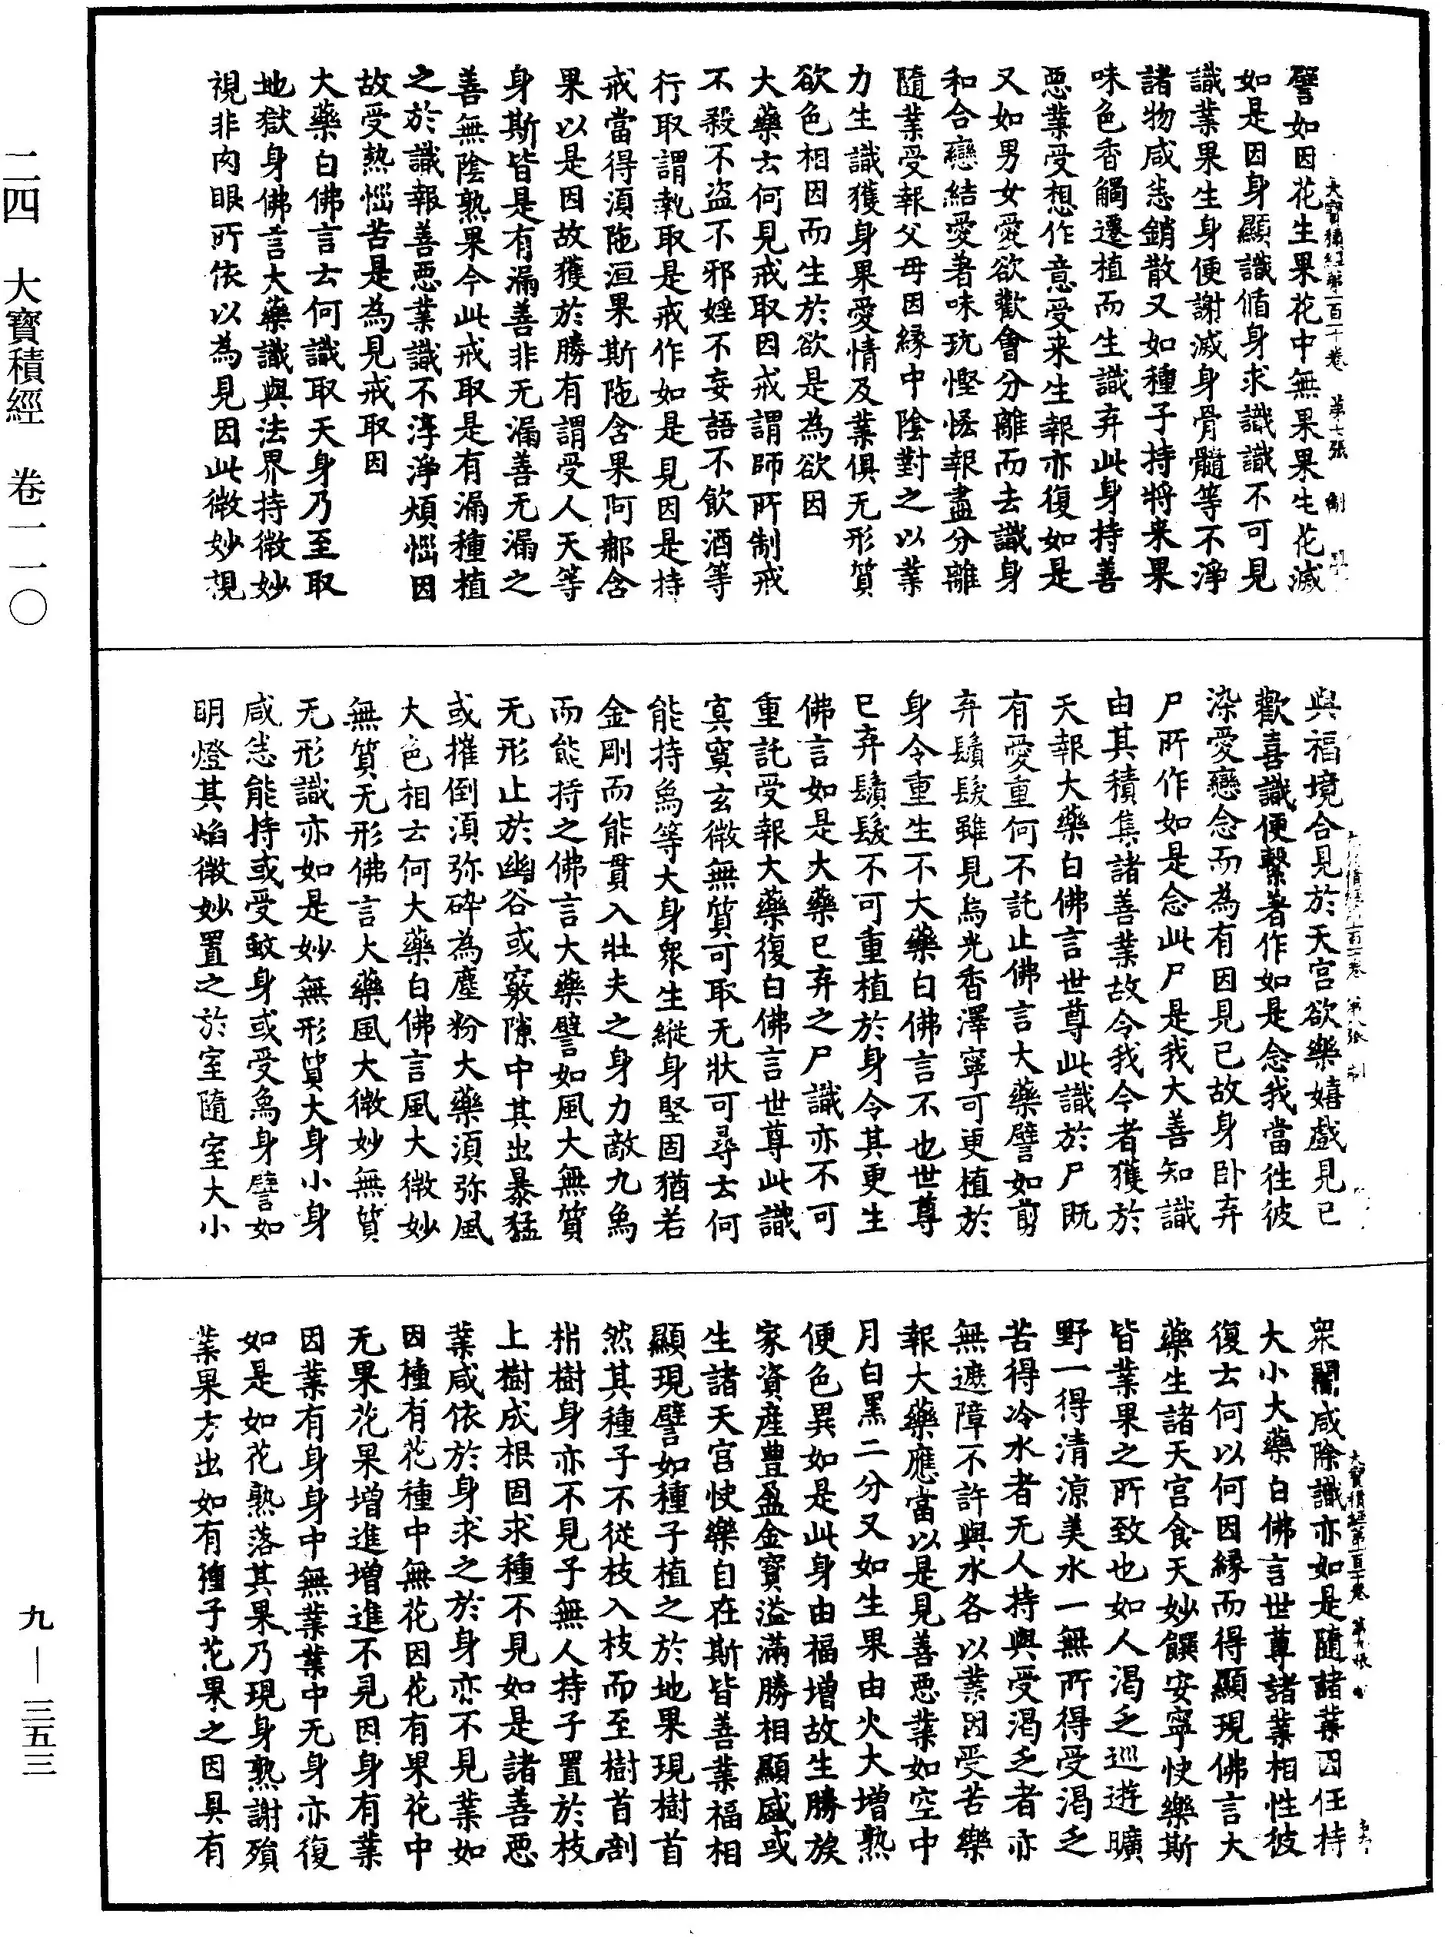 二四 大寶積經 卷一一〇
九—三五三
大寶積經第一百一十卷 第七張
譬如因花生果花中無果果生花滅
如是因身顯識循身求識識不可見
識業果生身便謝滅身骨髓等不淨
諸物咸悉銷散又如種子持將来果
味色香觸遷植而生識弃此身持善
惡業受想作意受来生報亦復如是
又如男女愛欲歡會分離而去識身
和合戀結愛著味玩慳悋報盡分離
隨業受報父母因緣中陰對之以業
力生識獲身果愛情及業俱无形質
欲色相因而生於欲是為欲因
大藥云何見戒取因戒謂師所制戒
不殺不盜不邪婬不妄語不飲酒等
行取謂執取是戒作如是見因是持
戒當得湏陁洹果斯陁含果阿那含
果以是因故獲於勝有謂受人天等
身斯皆是有漏善非无漏善无漏之
善無陰熟果今此戒取是有漏種植
之於識報善惡業識不淳淨煩惱因
故受熱惱苦是為見戒取因
大藥白佛言云何識取天身乃至取
地獄身佛言大藥識與法界持微妙
視非肉眼所依以為見因此微妙視
與福境合見於天宮欲樂嬉戲見已
歡喜識便繫著作如是念我當往彼
染愛戀念而為有因見已故身卧弃
尸所作如是念此尸是我大善知識
由其積集諸善業故令我今者獲於
天報大藥白佛言世尊此識於尸既
有愛重何不託止佛言大藥譬如剪
弃鬚髮雖見烏光香澤寧可更植於
身令重生不大藥白佛言不也世尊
已弃鬚髮不可重植於身令其更生
佛言如是大藥已弃之尸識亦不可
重託受報大藥復白佛言世尊此識
㝠㝠玄微無質可取无狀可尋云何
能持象等大身衆生縱身堅固猶若
金剛而能貫入壯夫之身力敵九象
而能持之佛言大藥譬如風大無質
无形止於幽谷或竅隙中其出暴猛
或摧倒湏弥碎為塵粉大藥湏弥風
大色相云何大藥白佛言風大微妙
無質无形佛言大藥風大微妙無質
无形識亦如是妙無形質大身小身
咸悉能持或受蚊身或受象身譬如
明燈其焰微妙置之於室隨室大小
大寶積經第一百一十卷 第九張
衆闇咸除識亦如是隨諸業因任持
大小大藥白佛言世尊諸業相性彼
復云何以何因緣而得顯現佛言大
藥生諸天宮食天妙饌安寧快樂斯
皆業果之所致也如人渴乏巡遊曠
野一得清涼美水一無所得受渴乏
苦得冷水者无人持與受渴乏者亦
無遮障不許與水各以業因受苦樂
報大藥應當以是見善惡業如空中
月白黑二分又如生果由火大增熟
便色異如是此身由福增故生勝族
家資產豊盈金寶溢滿勝相顯盛或
生諸天宮快樂自在斯皆善業福相
顯現譬如種子植之於地果現樹首
然其種子不從枝入枝而至樹首剖
枿樹身亦不見子無人持子置於枝
上樹成根固求種不見如是諸善惡
業咸依於身求之於身亦不見業如
因種有花種中無花因花有果花中
无果花果增進增進不見因身有業
因業有身身中無業業中无身亦復
如是如花熟落其果乃現身熟謝殞
業果方出如有種子花果之因具有